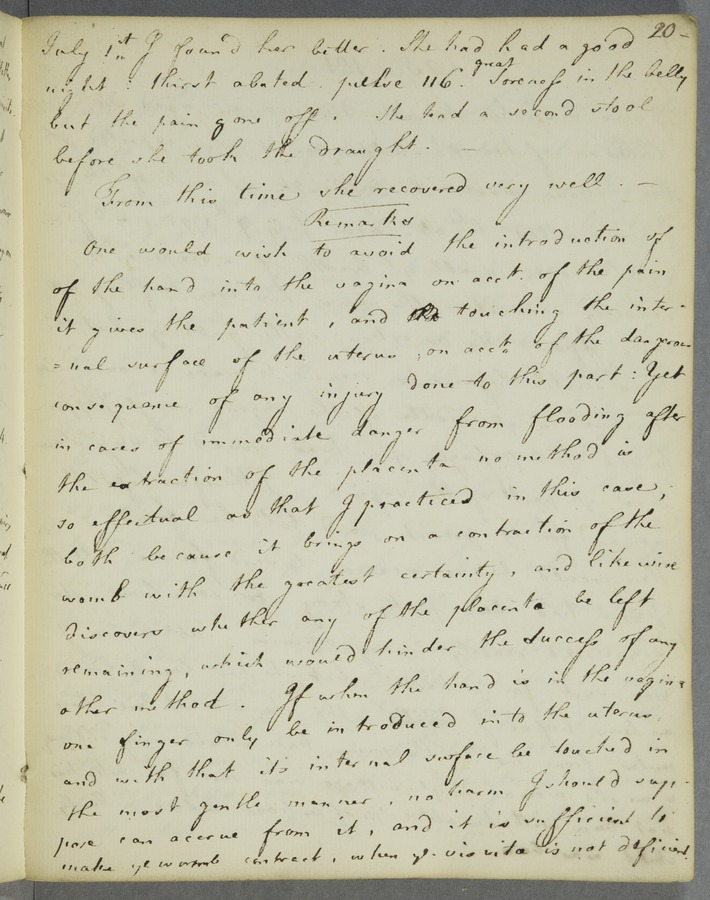 20
July 1st I found her better. She had had a good
night: thirst abated. pulse 116. great Soreness in the belly
but the pain gone off. She had a second stool
before she took the Draught. —
From this time she recovered very well. —
Remarks
One would wish to avoid the introduction of
of the hand into the vagina on acct. of the pain
it gives the patient, and touching the inter-
=nal surface of the uterus, on acct. of the dangerous
consequence of any injury done to this part: Yet
in cases of immediate danger from flooding after
the extraction of the placenta no method is
so effectual as that I practiced in this case;
both because it brings on a contraction of the
womb with the greatest certainty, and likewise
discovers whether any of the placenta be left
remaining, which would hinder the Success of any
other method. If when the hand is in the vagina
one finger only be introduced into the uterus,
and with that its internal surface be touched in
the most gentle manner, no harm I should sup-
pose can accrue from it, and it is sufficient to
make ye womb contract, when ye vis vitæ is not deficient.